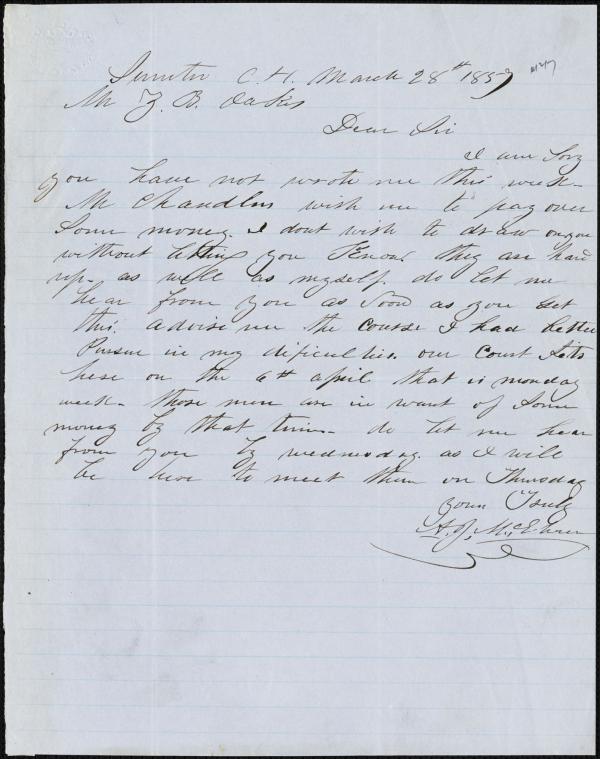 Sumter C. H. March 28th 1857
Mr Z. B. Oakes
Dear Sir
I am Sory
you have not wrote me this week-
Mr Chandlers wish me to pay over
Some money I dont wish to draw on you
without letting you Know. they are hard
up- as well as myself. do let me
hear from you as Soon as you get
this. advise me the course I had better
Pursue in my dificulties. our Court Sets
here on the 6th april that is monday
week- those men are in want of Some
money by that time- do let me hear
from you by wednesday. as I will
be here to meet them on Thursday
yours Truly
A. J. McElveen